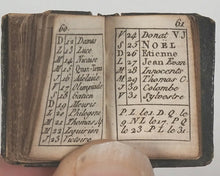 60
D 12 Damas
L 13 Luce
M 14 Nicaise
M 15 Quat.Tems
J 16 Adelaide
V 17 Olimpiade
S 18 Gatien
D 19 Meuris
L 20 Philogone
M 21 Thomas
M 22
J 23 Victoire
61
V 24 Donat VJ
S 25 NOEL
D 26 Etienne
L 27 Jean Evan
M 28 Innocents
M 29 Thomas C
J 30 Colombe
V 31 Sylvestre
P.L le 1 D Q le
9 N L le 17 P.Q
le 23 P.L le 31